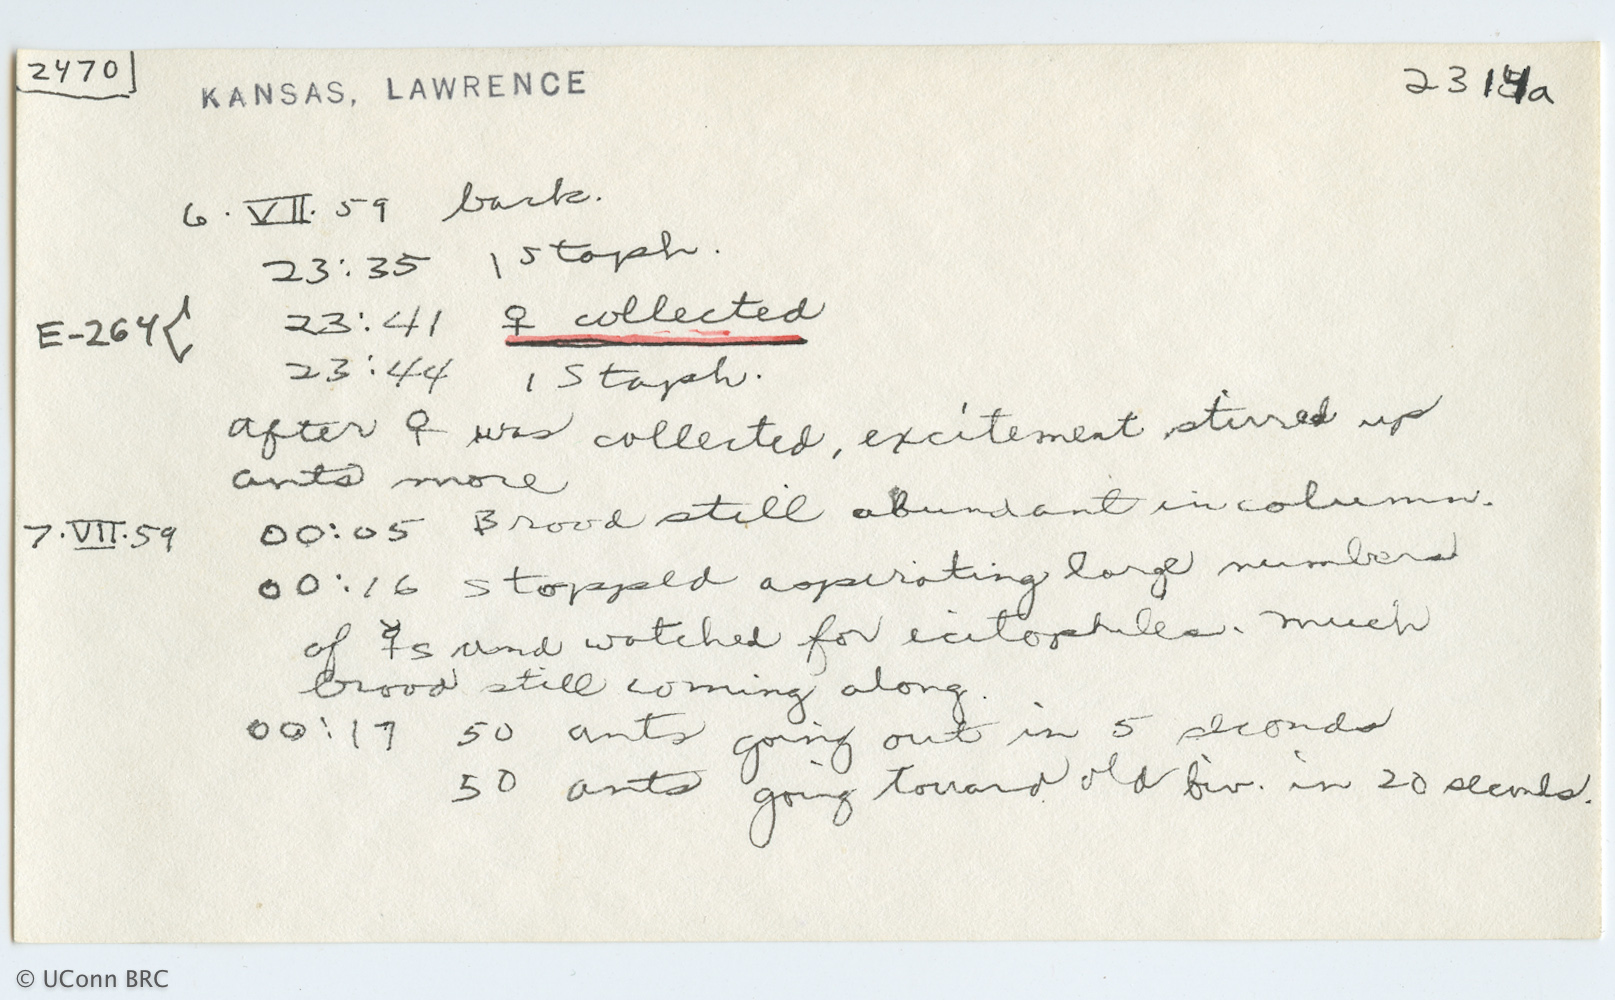 2470
KANSAS, LAWRENCE
2314a
6. VII. 59 back.
23:35 1 Staph.
E-264 { 23:41 ♀ collected
23:44 1 Staph.
after ♀ was collected, excitement stirred up
ants more
7.VII.59 00:05 Brood still abundant in column.
00:16 stopped aspirating large numbers
of ☿s and watched for ecitophiles. Much
brood still coming along.
00:17 50 ants going out in 5 seconds
50 ants going toward old biv. in 20 seconds.
© UConn BRC